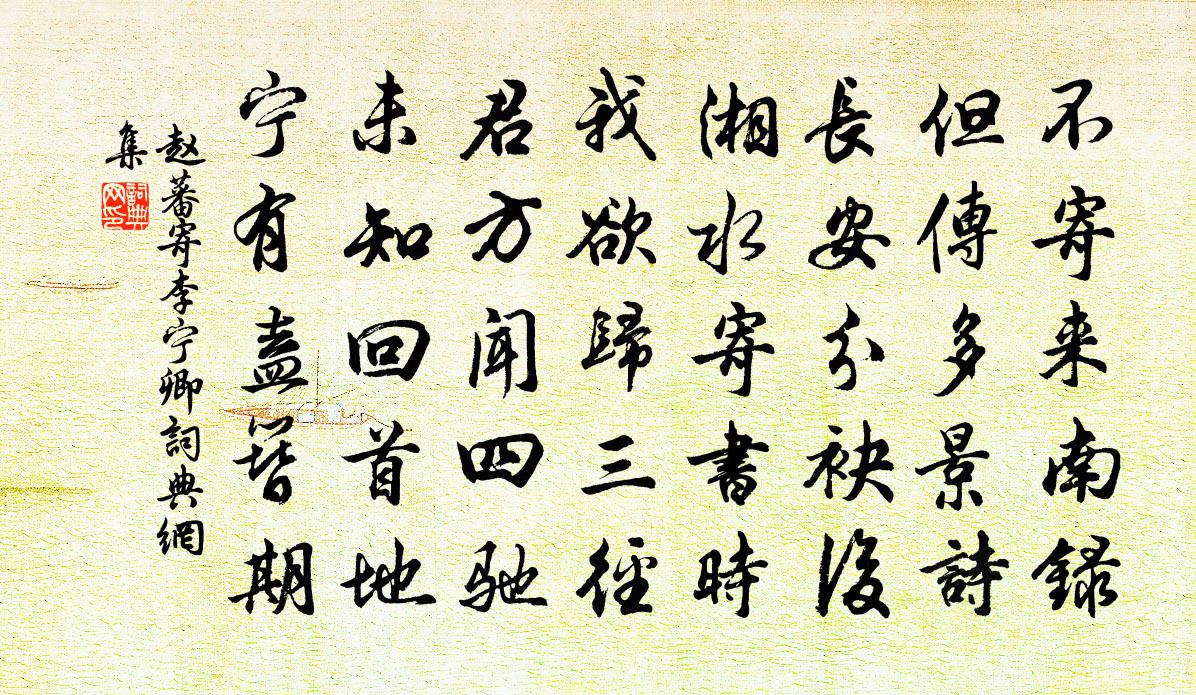 不寄来南録
但傳多景詩
長安分袂後
湘水寄書時
我欲歸三徑
君方闻四驰
未知回首地
宁有盍簪期
赵蕃寄李宁卿詞典網
集
詞典
网印